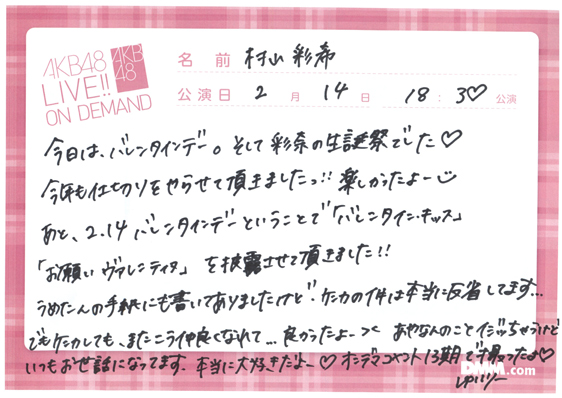 AKB48
LIVE!!
ON DEMAND
AKB
48
名前 村山彩希
公演日 2月14日 18:30公演
今日は、バレンタインデー。そして彩奈の生誕祭でした♡
今年も仕切りをやらせて頂きましたっ!! 楽しかったよー
あと、2.14 バレンタインデーということで「バレンタイン・キッス」
「お願いヴァレンティヌ」を披露させて頂きました!!
うめたんの手紙にも書いてありましたけど、ケンカの件は本当に反省してます...
でもケンカしても、またこうイ仲良くなれて...良かったよー >< あやなんのこと イジッちゃうけど
いつもお世話になってます。本当に大好きだよー♡ オンデマコメント13期で
DMM.com